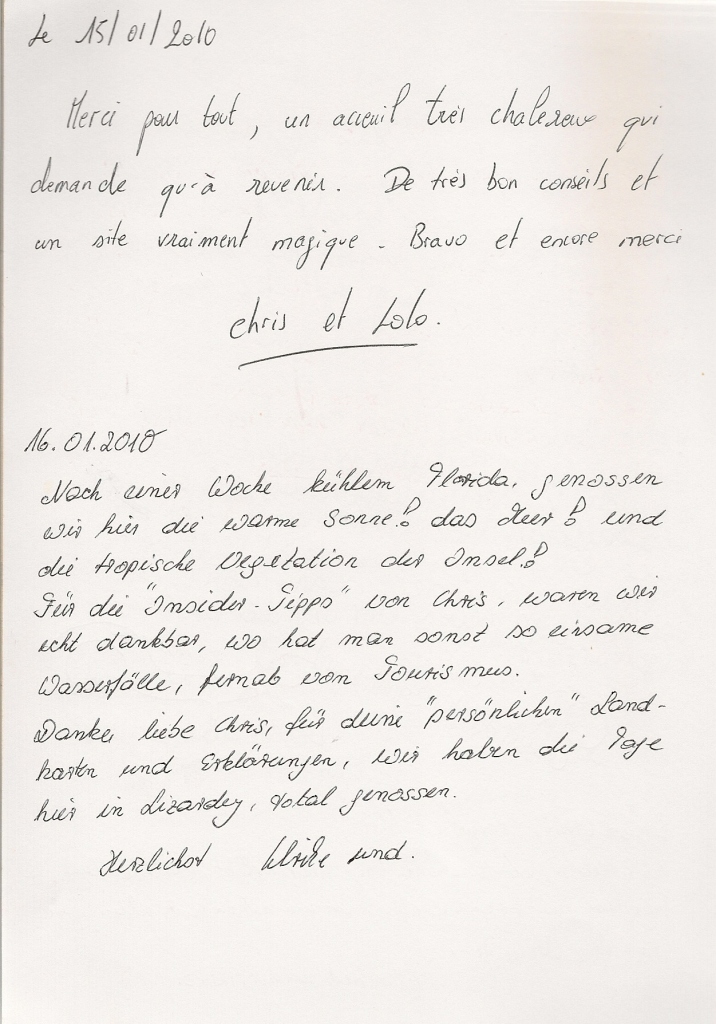 Le 15/01/2010
Merci pour tout, un accueil très chalereux qui
demande qu'à revenir. De très bon conseils et
un site vraiment magique. Bravo et encore merci
Chris et Lolo.
16.01.2010
Nach einer Woche kühlem Florida, genossen
wir hier die warme Sonne! das Meer! und
die tropische Vegetation der Insel!
Für die "Insider-Tipps" von Chris, waren wir
echt dankbar, wo hat man sonst so einsame
Wasserfälle, fernab vom Tourismus.
Danke, liebe Chris, für deine "persönlichen" Land-
karten und Erklärungen, wir haben die Tage
hier in Lizardey, total genossen.
Herzlichst Ulrike und.